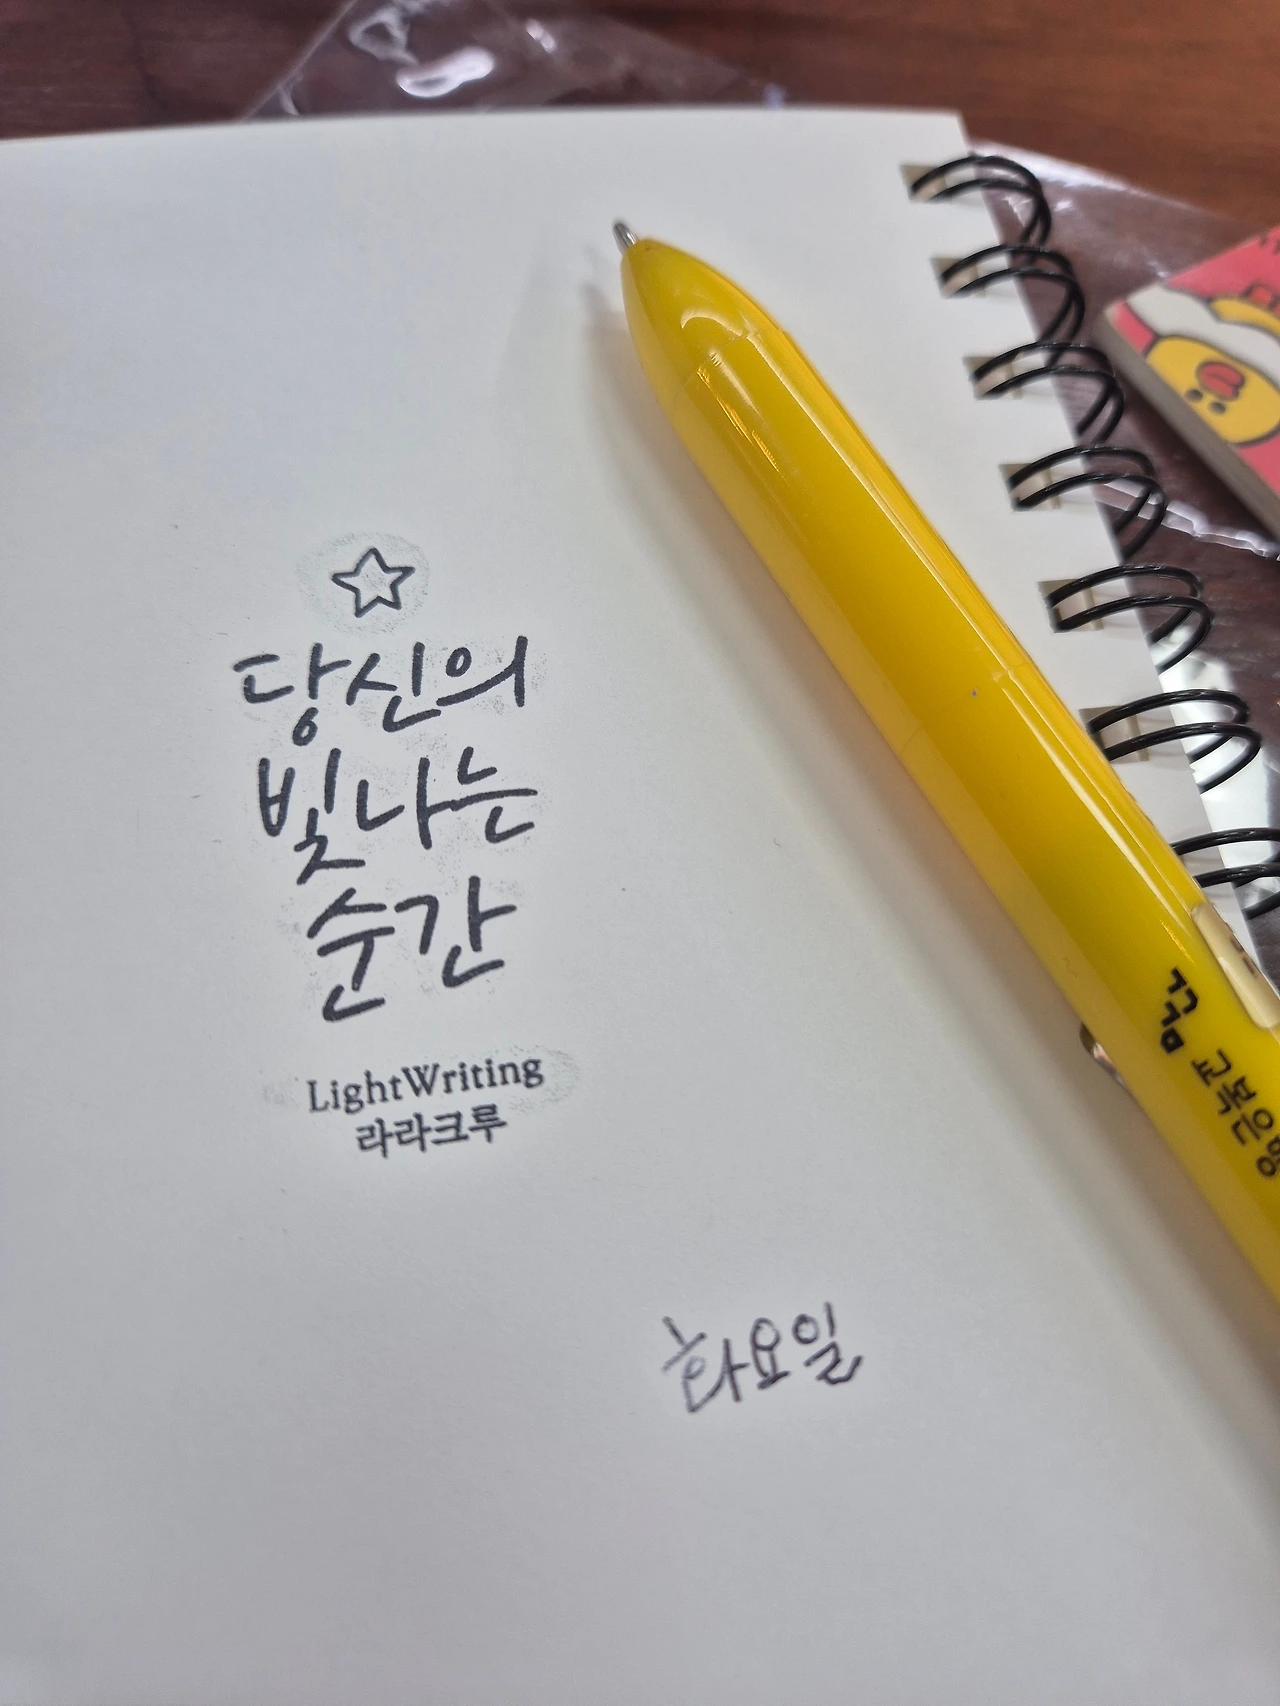 당신의
빛나는
순간
LightWriting
라라크루
화요일